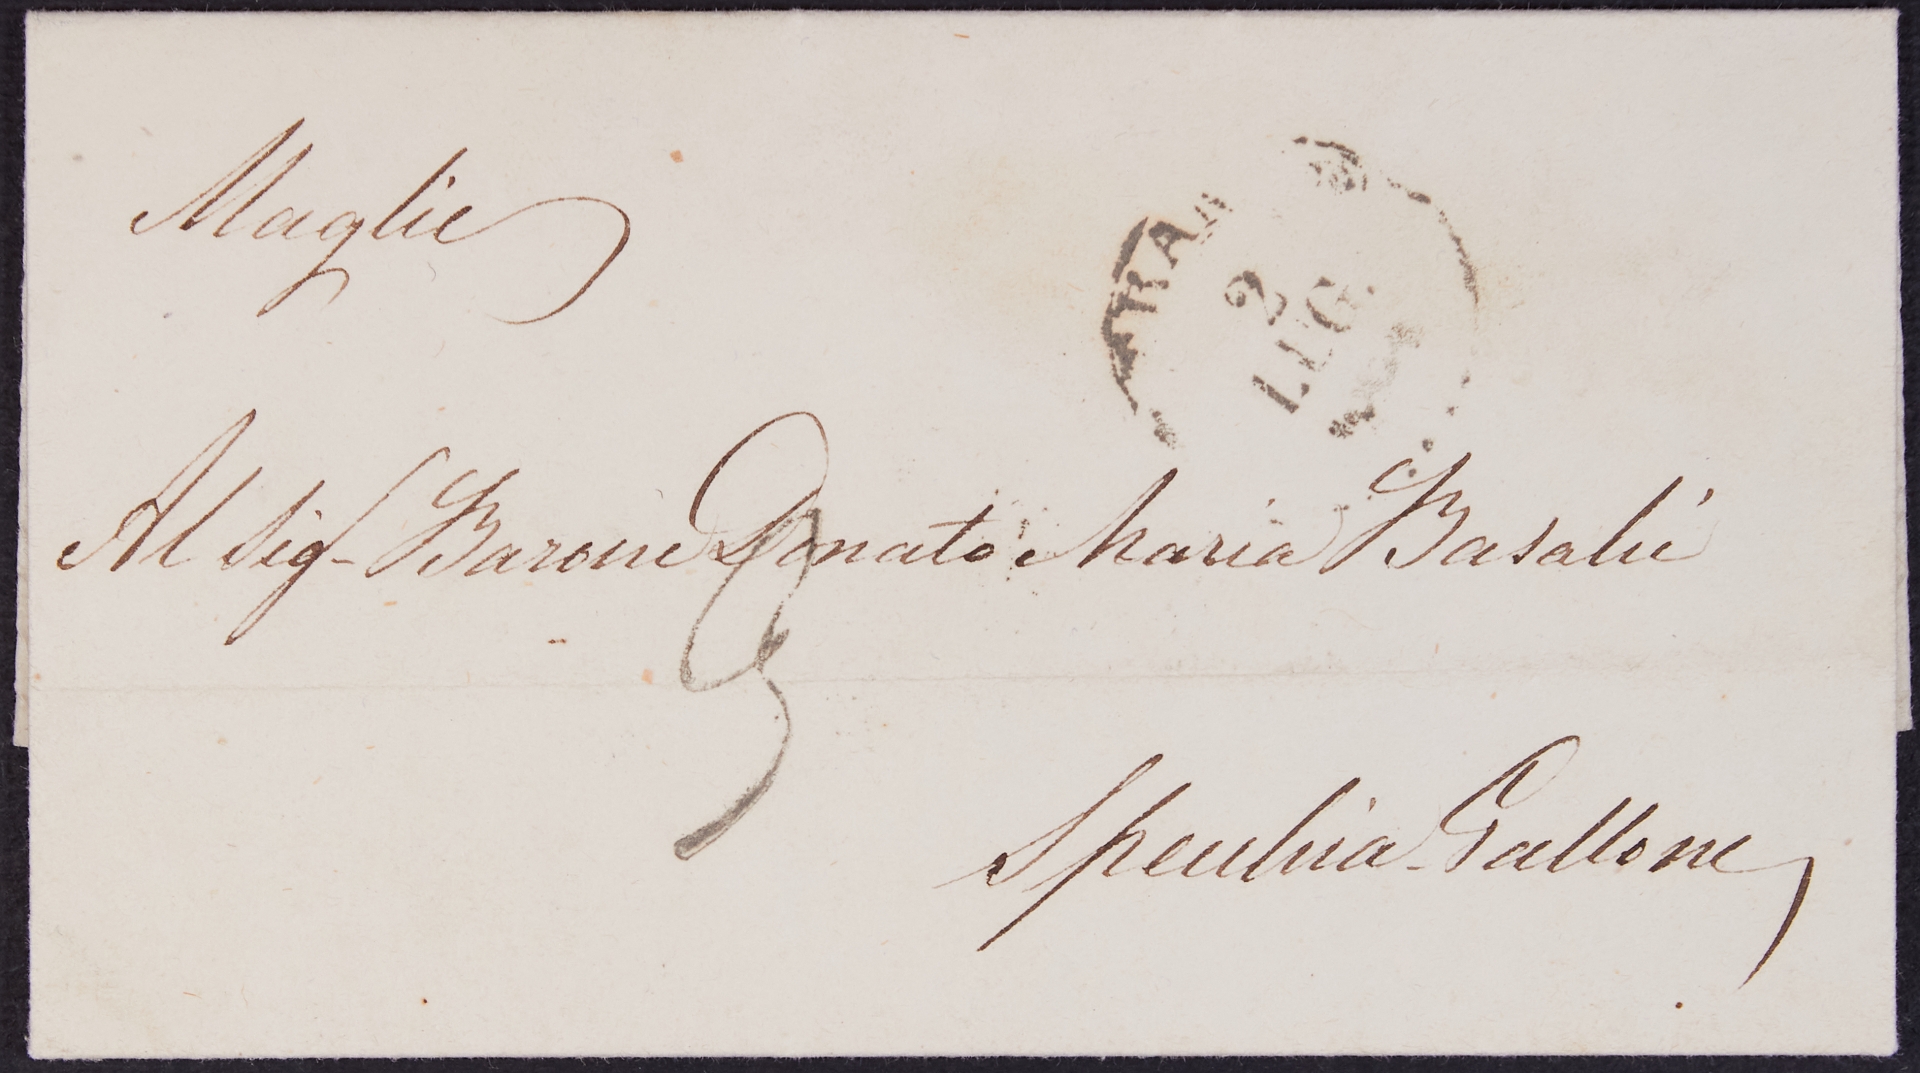 Maglie
2
LUG.
Al Sigr Barone Donato Maria Basalù
Specchia Gallone